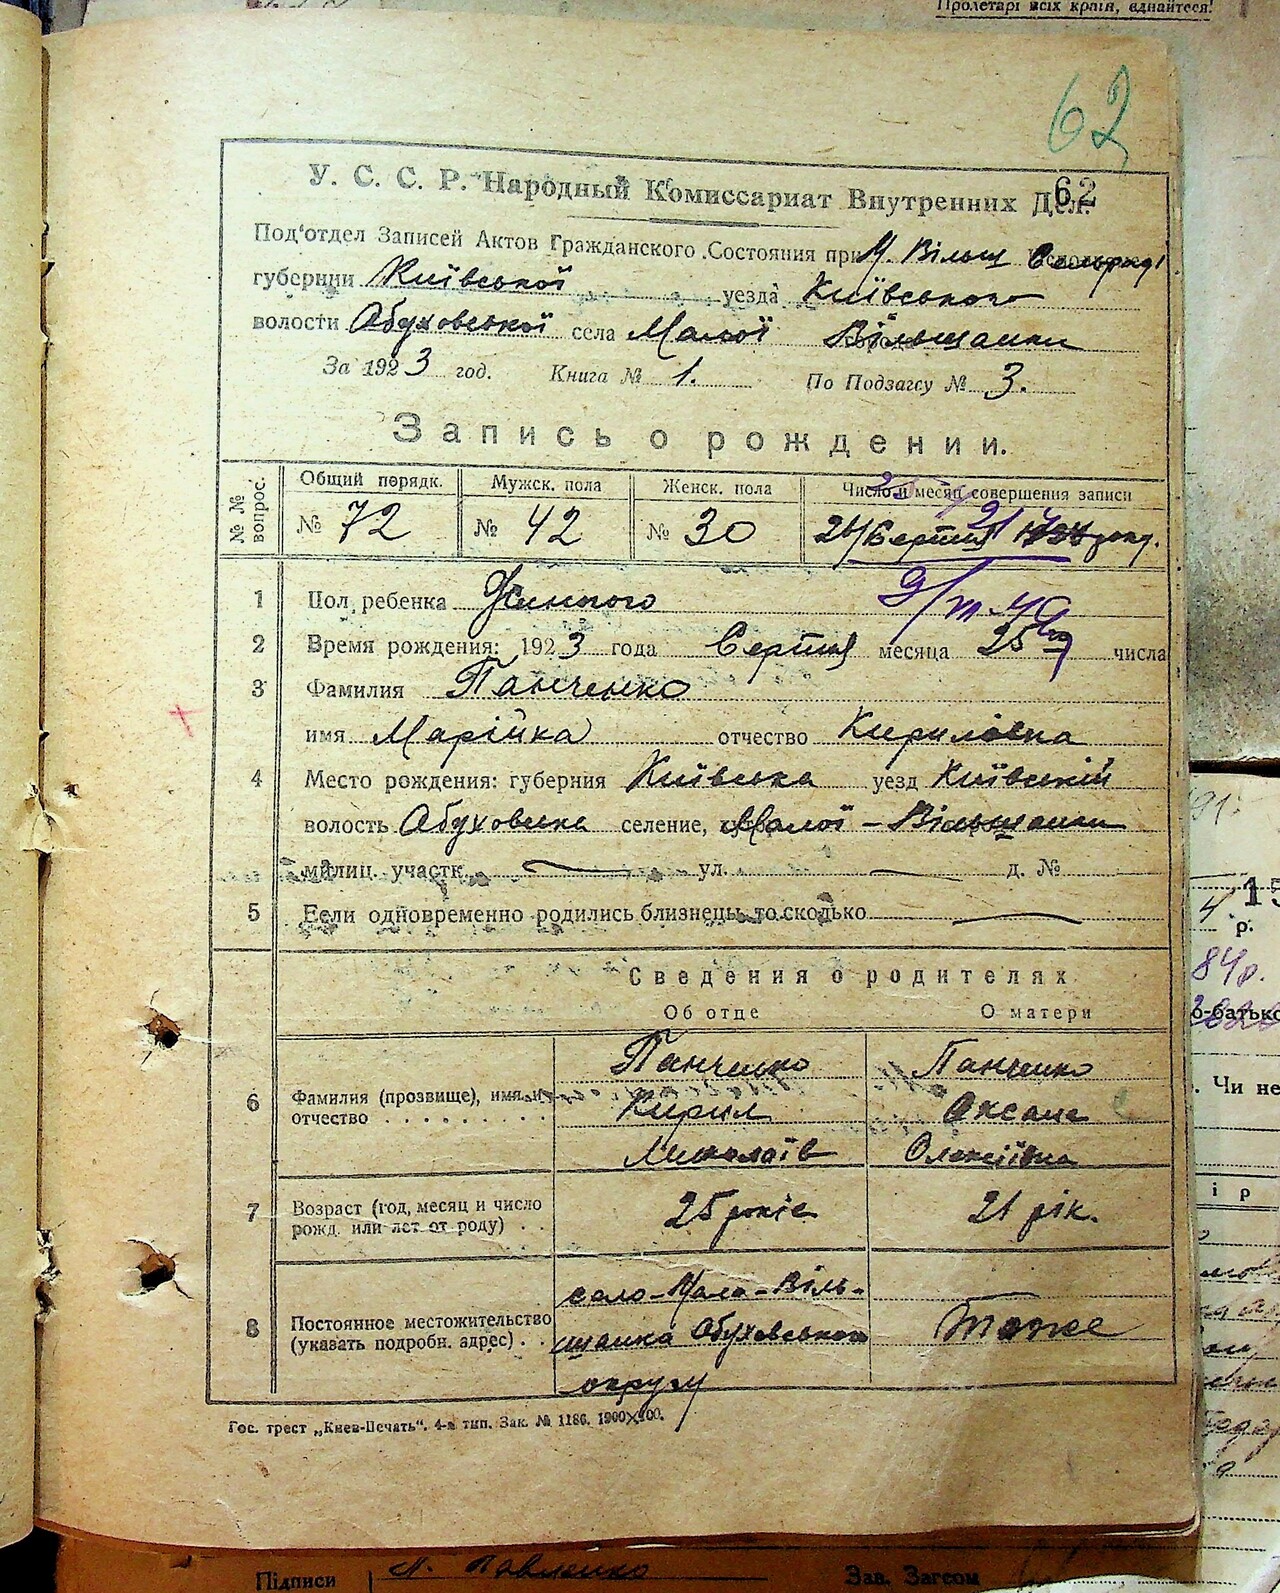 Пролетарі всіх країн, єднайтеся!
62
У. С. С. Р. Народный Комиссариат Внутренних Дел.
62
Под'отдел Записей Актов Гражданского Состояния при М. Вільш Сельраді
губернии Київської уезда Київського
волости Обуховської села Малої Вільшанки
За 1923 год. Книга № 1. По Подзагсу № 3.
Запись о рождении.
№№ вопрос. Общий порядк. Мужск. пола Женск. пола Число и месяц совершения записи
№ 72 № 42 № 30 26/Серпня року.
1 Пол ребенка Жиного
2 Время рождения: 1923 года Серпня месяца 25 числа
3 Фамилия Панченко
имя Марійка отчество Кирилівна
4 Место рождения: губерния Київська уезд Київський
волость Обуховська селение, Малої-Вільшанки
милиц. участк. ул. д. №
5 Если одновременно родились близнецы, то сколько
Сведения о родителях
Об отце О матери
Панченко Панченко
6 Фамилия (прозвище), имя и отчество Кирил Оксана
Миколаїв Олексіївна
7 Возраст (год, месяц и число рожд. или лет от роду) 25 років 21 рік.
село-Мала-Віль-
8 Постоянное местожительство (указать подробн. адрес) шанка Обуховського Тоже
округу
Гос. трест „Киев-Печать“. 4-я тип. Зак. № 1186. 1900×100.
р.
84р.
о-батько
Чи не
Підписи Павленко Зав. Загсом